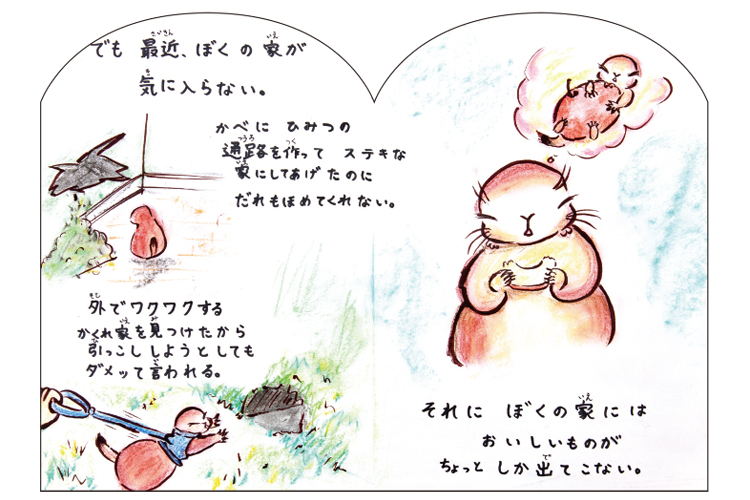 でも 最近、ぼくの家が
気に入らない。
かべに ひみつの
通路を作って ステキな
家にしてあげたのに
だれもほめてくれない。
外でワクワクする
かくれ家を見つけたから
引っこし しようとしても
ダメッて言われる。
それに ぼくの家には
おいしいものが
ちょっと しか出てこない。